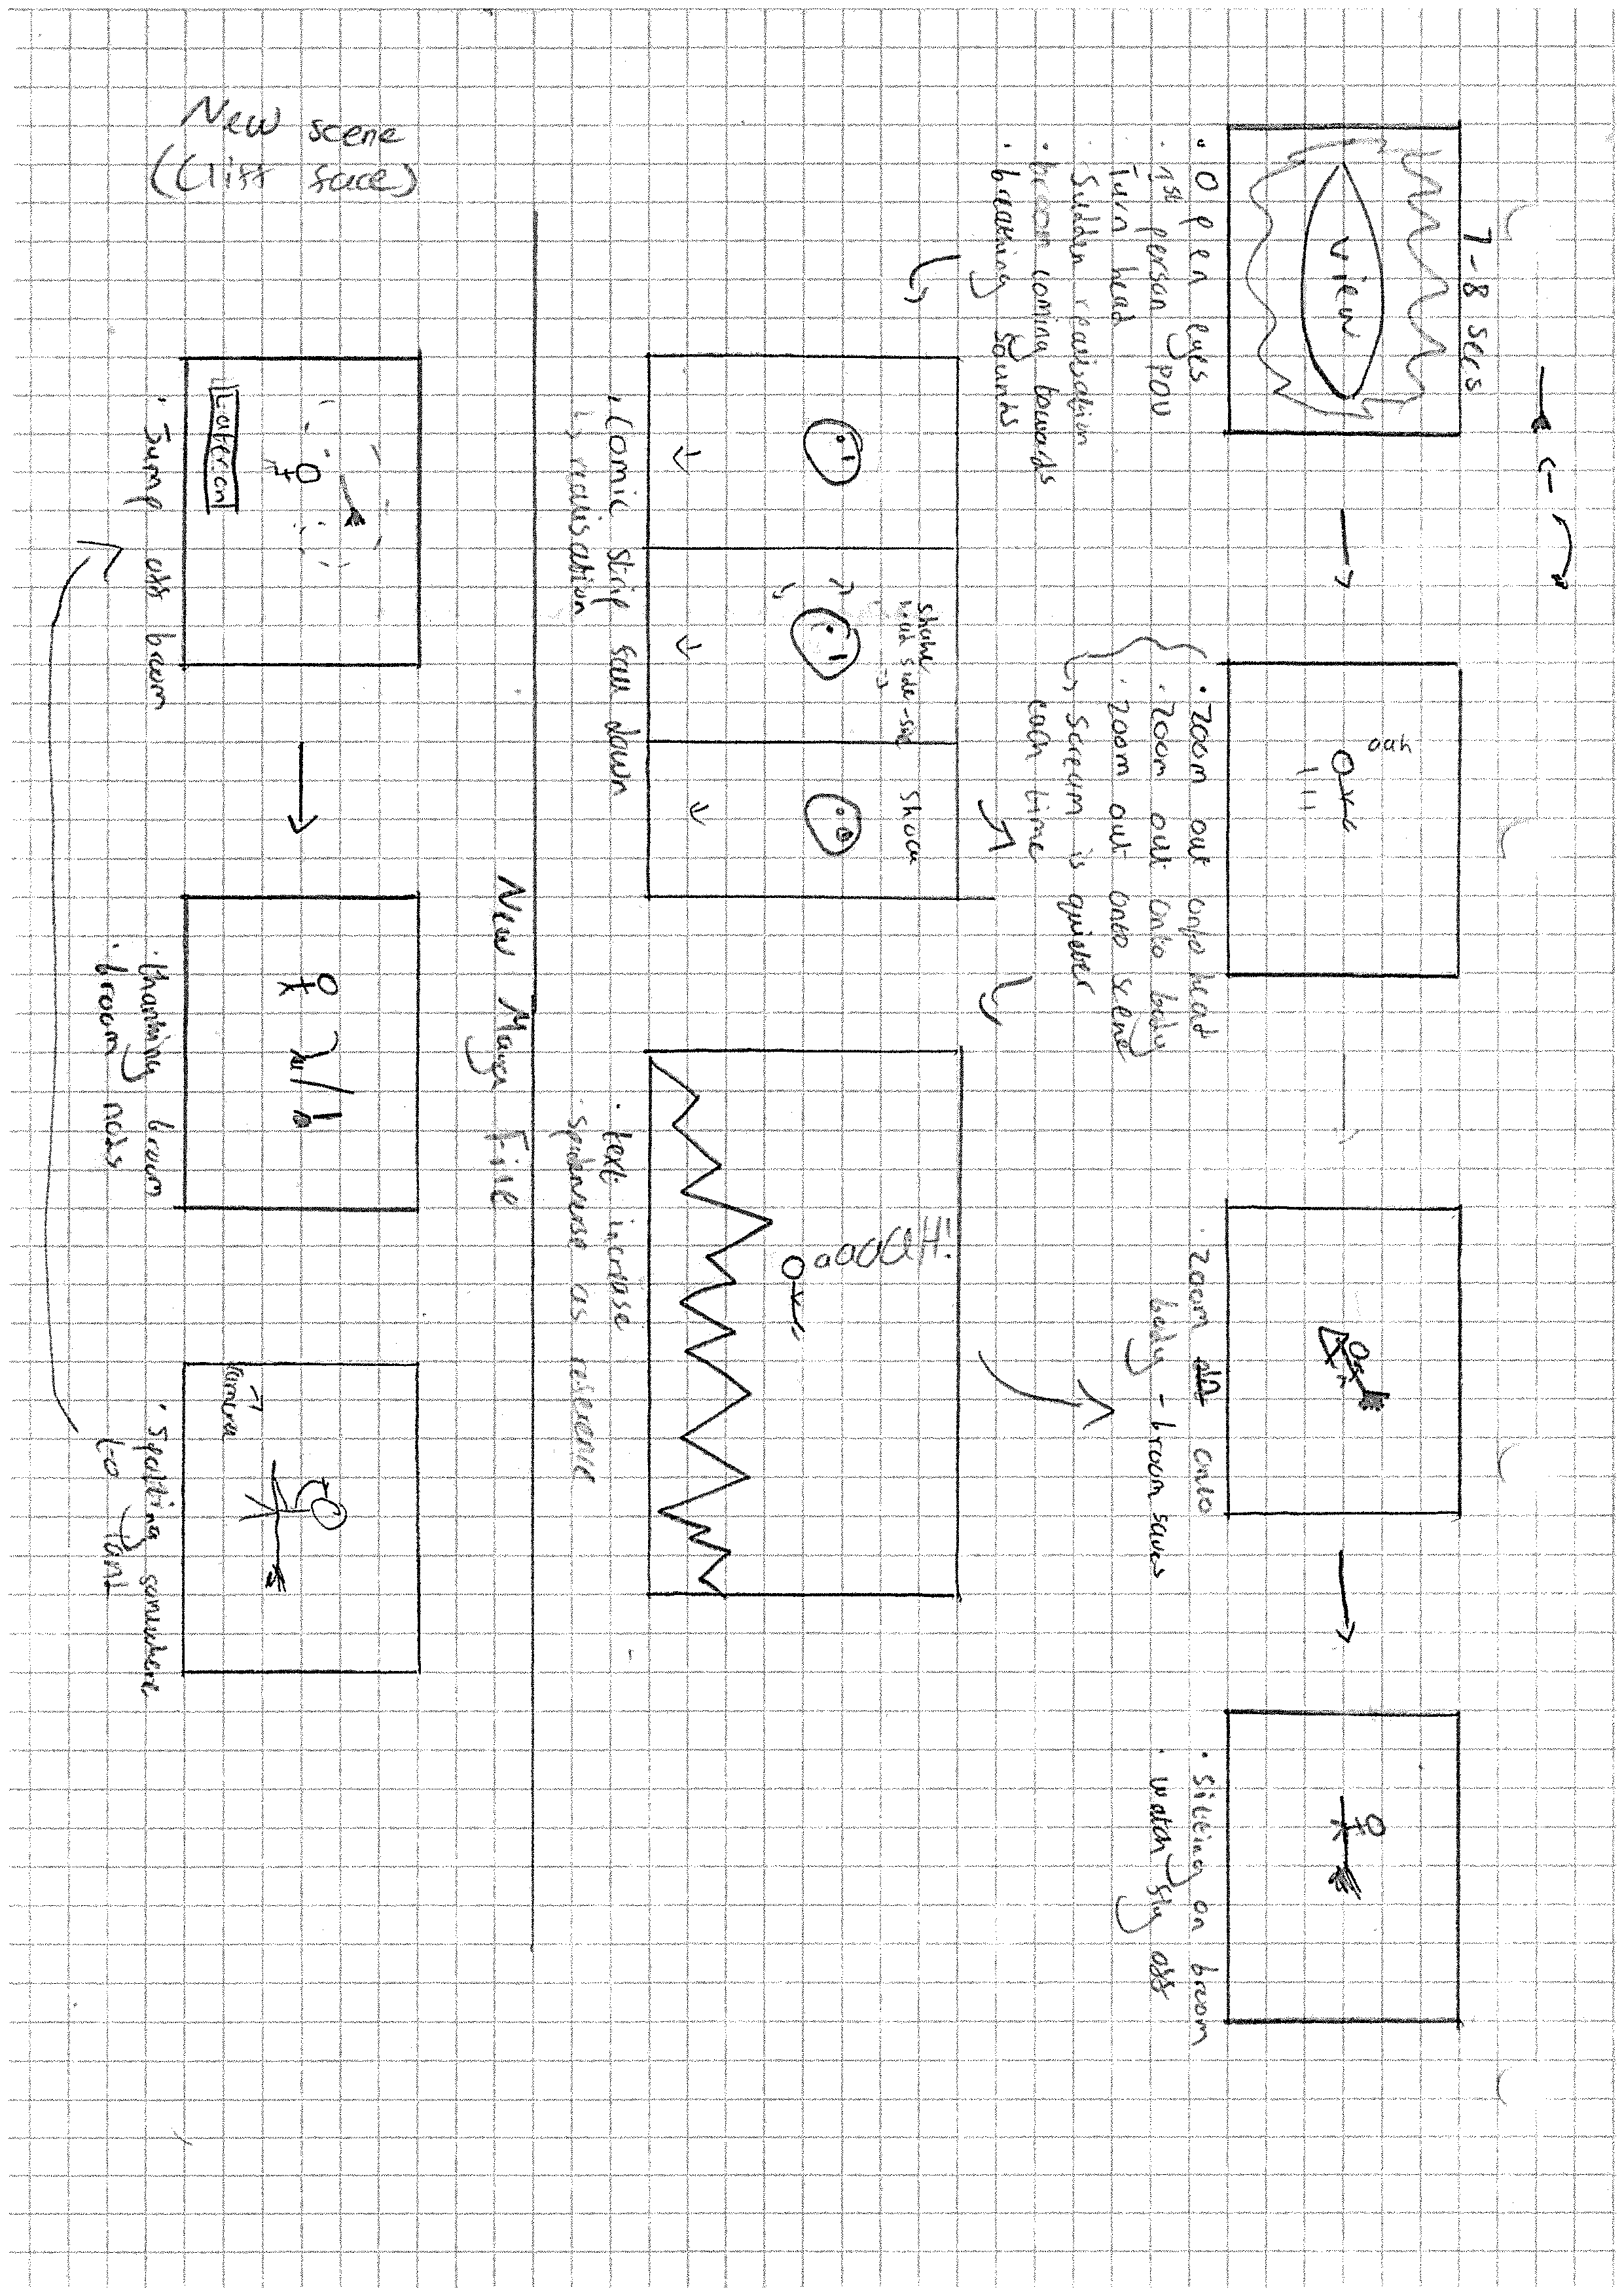 7-8 secs
view
• Open eyes
• 1st person POV
• Turn head
• Sudden realisation
• broom coming towards
• breathing sounds
aah
• zoom out onto head
• zoom out onto body
• zoom out onto scene
↳ scream is quieter
each time
• zoom onto
body - broom saves
• Sitting on broom
• watch fly off
shake
head side-side
Shock
• Comic strip fall down
↳ realisation
aaaaaH!
• text increase
• spiderverse as reference
New Maya File
New scene
(Cliff face)
Later on
• Jump off broom
• thanking broom
• broom nods
camera
• Spotting somewhere
to land